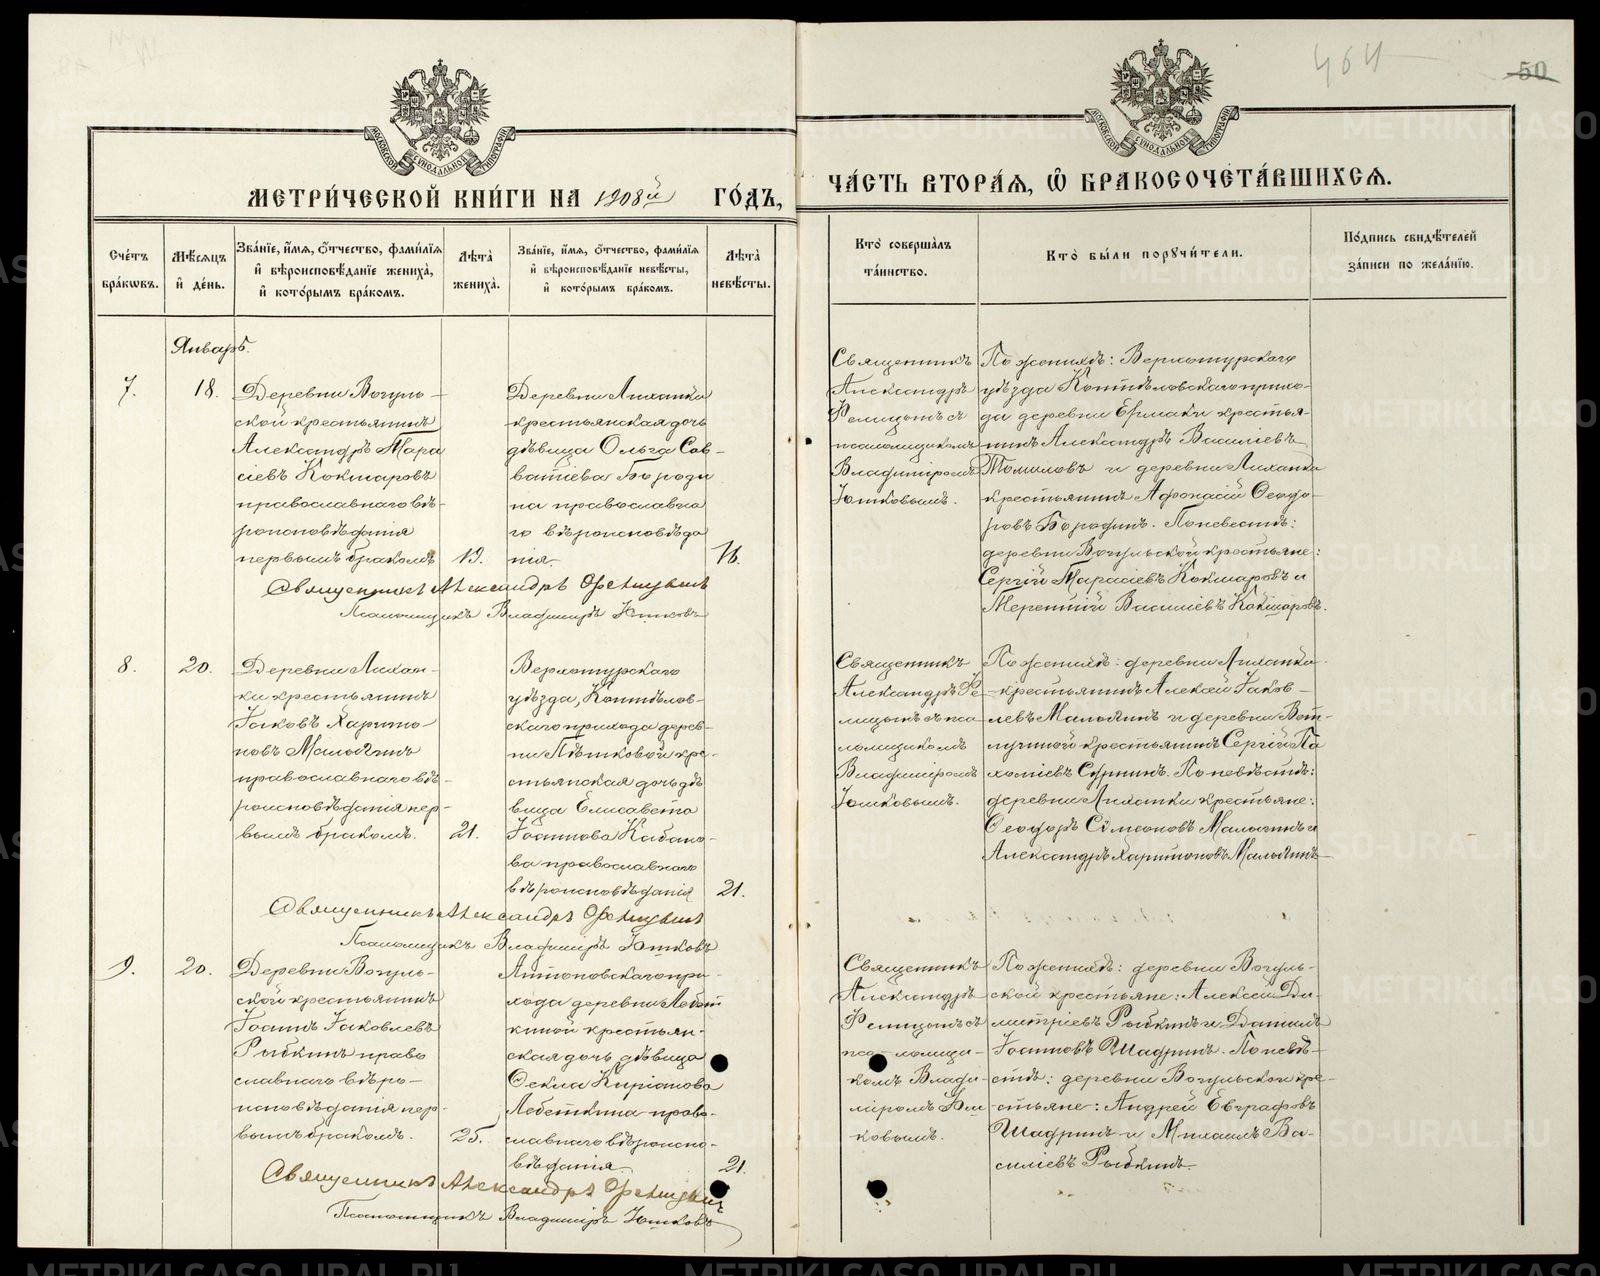 464
50
МЕТРИ́ЧЕСКОЙ КНИ́ГИ НА 1908й ГО́ДЪ,
ЧА́СТЬ ВТОРА́Я, Ѡ БРАКОСОЧЕТА́ВШИХСЯ.
Сче́тъ бра́кѡвъ.
Мѣ́сяцъ и҆ де́нь.
Зва́нїе, и҆́мя, ѻ҆́тчество, фами́лїя и҆ вѣроисповѣ́данїе жениха̀, и҆ кото́рымъ бра́комъ.
Лѣ́та жениха̀.
Зва́нїе, и҆́мя, ѻ҆́тчество, фами́лїя и҆ вѣроисповѣ́данїе невѣ́сты, и҆ кото́рымъ бра́комъ.
Лѣ́та невѣ́сты.
Кто̀ соверша́лъ та́инство.
Кто̀ бы́ли порꙋчи́тели.
По́дпись свидѣ́телей за́писи по жела́нїю.
Январь.
7.
18.
Деревни Вогуль-
ской крестьянинъ
Александръ Тара
сіевъ Кокшаровъ
православнаго вѣ-
роисповѣданія
первымъ бракомъ
19.
Деревни Лиханка
крестьянская дочь
дѣвица Ольга Сав-
ватіева Бороди
на православна
го вѣроисповѣда
нія.
16.
Священникъ
Александръ
съ
псаломщикомъ
Владиміромъ
Юшковымъ.
По женихѣ: Верхотурскаго
уѣзда Коптѣловскаго прихо-
да деревни Ермаки крестья-
нинъ Александръ Василіевъ
Томиловъ и деревни Лиханка
крестьянинъ Афонасій Ѳеодо-
ровъ Бородинъ. По невестѣ:
деревни Вогульской крестьяне:
Сергій Тарасіевъ Кокшаровъ и
Терентій Василіевъ Кокшаровъ.
Священникъ Александръ
Псаломщикъ Владиміръ Юшковъ
8.
20.
Деревни Лихан-
ки крестьянинъ
Іаковъ Харито-
новъ Малыгинъ
православнаго вѣ-
роисповѣданія пер-
вымъ бракомъ.
21.
Верхотурскаго
уѣзда, Коптѣлов-
скаго прихода дерев-
ни Пѣтковой кре-
стьянская дочь дѣ
вица Елисавета
Іоаннова Кабано-
ва православнаго
вѣроисповѣданія
21.
Священникъ
Александръ
съ пса
ломщикомъ
Владиміромъ
Юшковымъ.
По женихѣ: деревни Лиханка
крестьянинъ Алексій Іаков-
левъ Малыгинъ и деревни
крестьянинъ Сергій Па
хоміевъ По невѣстѣ:
деревни Лиханки крестьяне:
Ѳеодоръ Сѵмеоновъ Малыгинъ и
Александръ Харитоновъ Малыгинъ
Священникъ Александръ
Псаломщикъ Владиміръ Юшковъ
9.
20.
Деревни Вогуль-
ской крестьянинъ
Іоаннъ Іаковлевъ
Рыбкинъ право
славнаго вѣро-
исповѣданія пер-
вымъ бракомъ.
25.
Антоновскаго при-
хода деревни Лебёт
киной крестьян-
ская дочь дѣвица
Ѳекла Киріанова
Лебеткина право-
славнаго вѣроиспо-
вѣданія
21.
Священникъ
Александръ
съ
псаломщи-
комъ Влади-
міромъ Юш
ковымъ.
По женихѣ: деревни Вогуль-
ской крестьяне: Алексѣй Ди-
митріевъ Рыбкинъ и Даніилъ
Іоанновъ Шадринъ. По невѣ-
стѣ: деревни Вогульской кре-
стьяне: Андрей Евграфовъ
Шадринъ и Михаилъ Ва-
силіевъ Рыбкинъ.
Священникъ Александръ
Псаломщикъ Владиміръ Юшковъ
METRIKI.GASO-URAL.RU